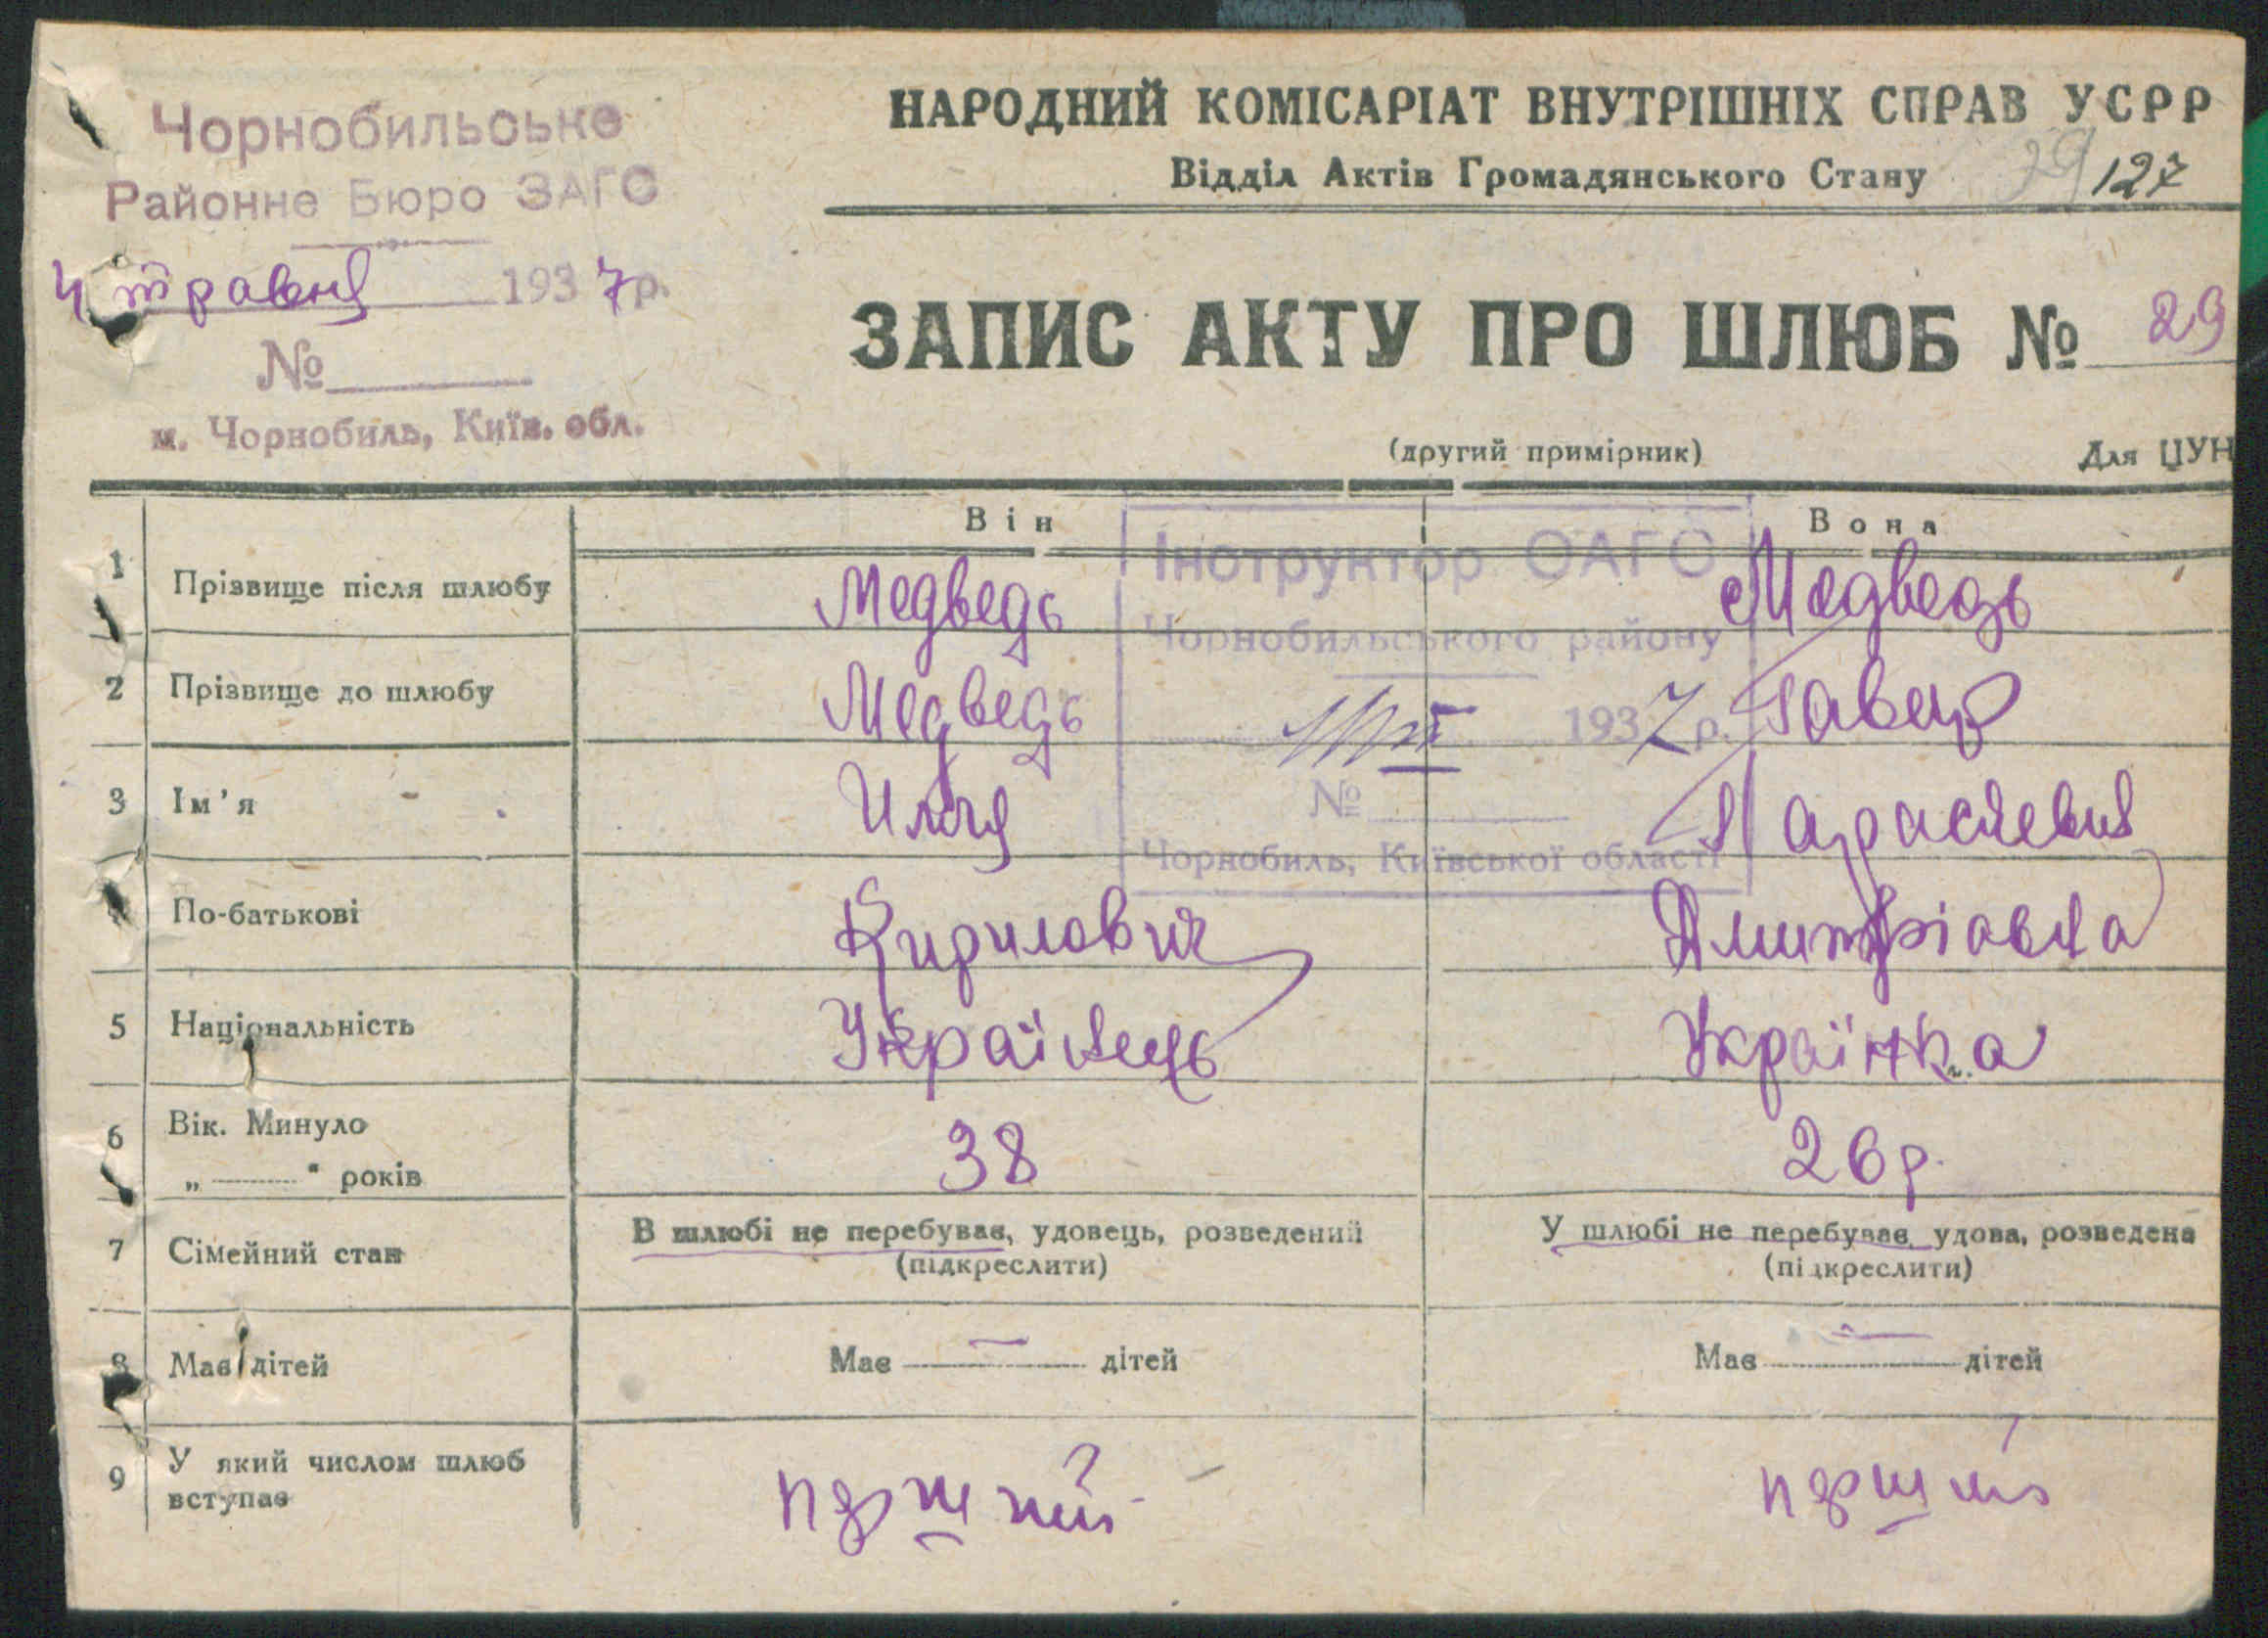 Чорнобильське
Районне Бюро ЗАГС
4 травня 1937 р.
№
м. Чорнобиль, Київ. обл.
НАРОДНИЙ КОМІСАРІАТ ВНУТРІШНІХ СПРАВ УСРР
Відділ Актів Громадянського Стану 29 127
ЗАПИС АКТУ ПРО ШЛЮБ № 29
(другий примірник) Для ЦУН
Він Вона
Інструктор ОАГС
Чорнобильського району
1937 р.
№
Чорнобиль, Київської області
1 Прізвище після шлюбу Медведь Медведь
2 Прізвище до шлюбу Медведь
3 Ім'я Илля
По-батькові Кирилович Дмитріовна
5 Національність Українець Українка
6 Вік. Минуло
„ " років 38 26 р.
7 Сімейний стан В шлюбі не перебував, удовець, розведений У шлюбі не перебував, удова, розведена
(підкреслити) (підкреслити)
8 Має дітей Має — дітей Має — дітей
9 У який числом шлюб
вступає перший перший